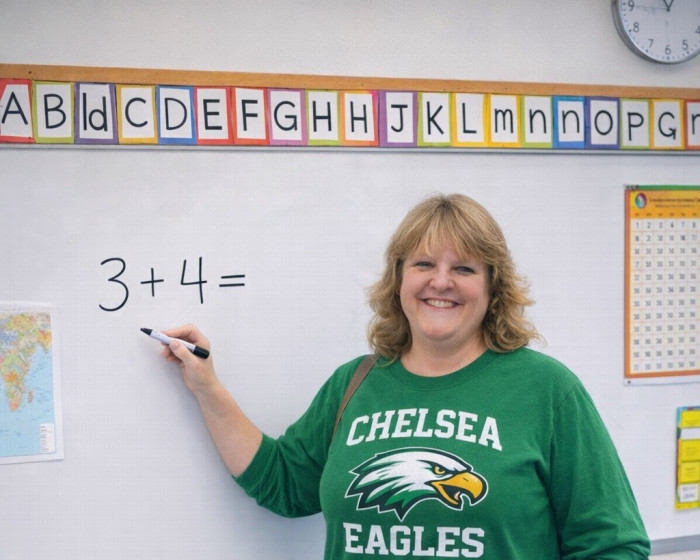 A B ld C D E F G H H J K L m n n o P G r
3 + 4 =
CHELSEA
EAGLES